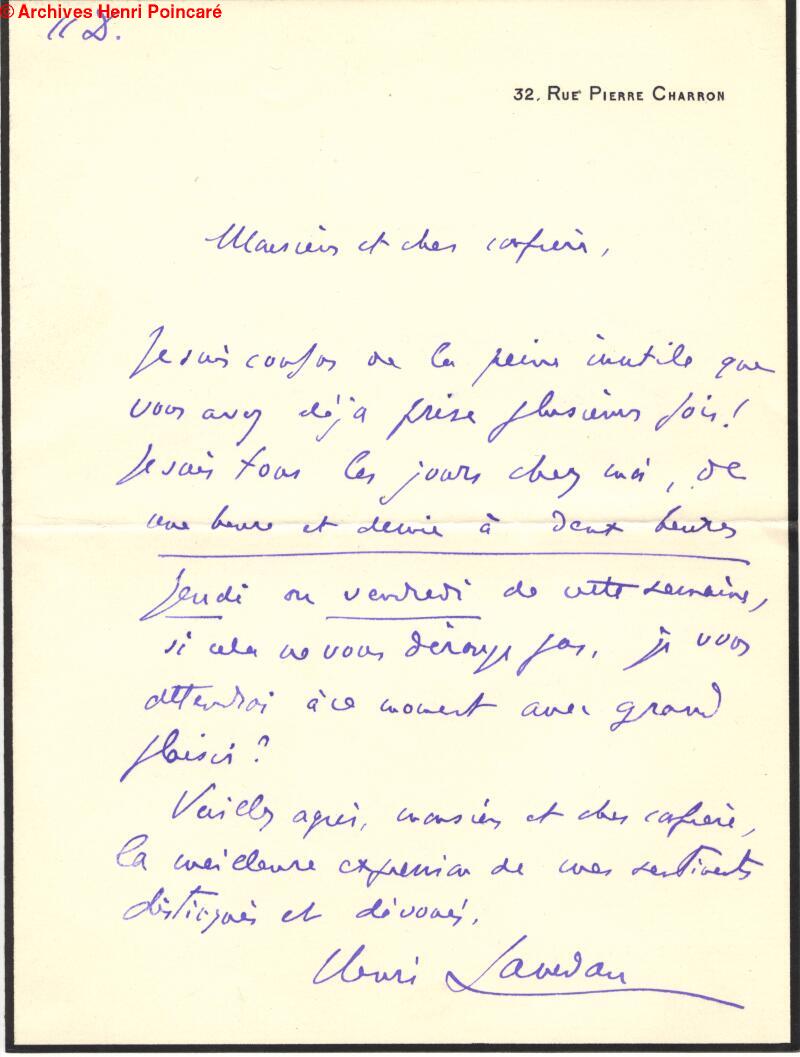 © Archives Henri Poincaré
11 D.
32, Rue Pierre Charron
Monsieur et cher confrère,
Je suis confus de la peine inutile que
vous avez déjà prise plusieurs fois!
Je suis tous les jours chez moi, de
une heure et demie à deux heures
Jeudi ou vendredi de cette semaine,
si cela ne vous dérange pas, je vous
attendrai à ce moment avec grand
plaisir?
Veuillez agréer, monsieur et cher confrère,
la meilleure expression de mes sentiments
distingués et dévoués.
Henri Lavedan